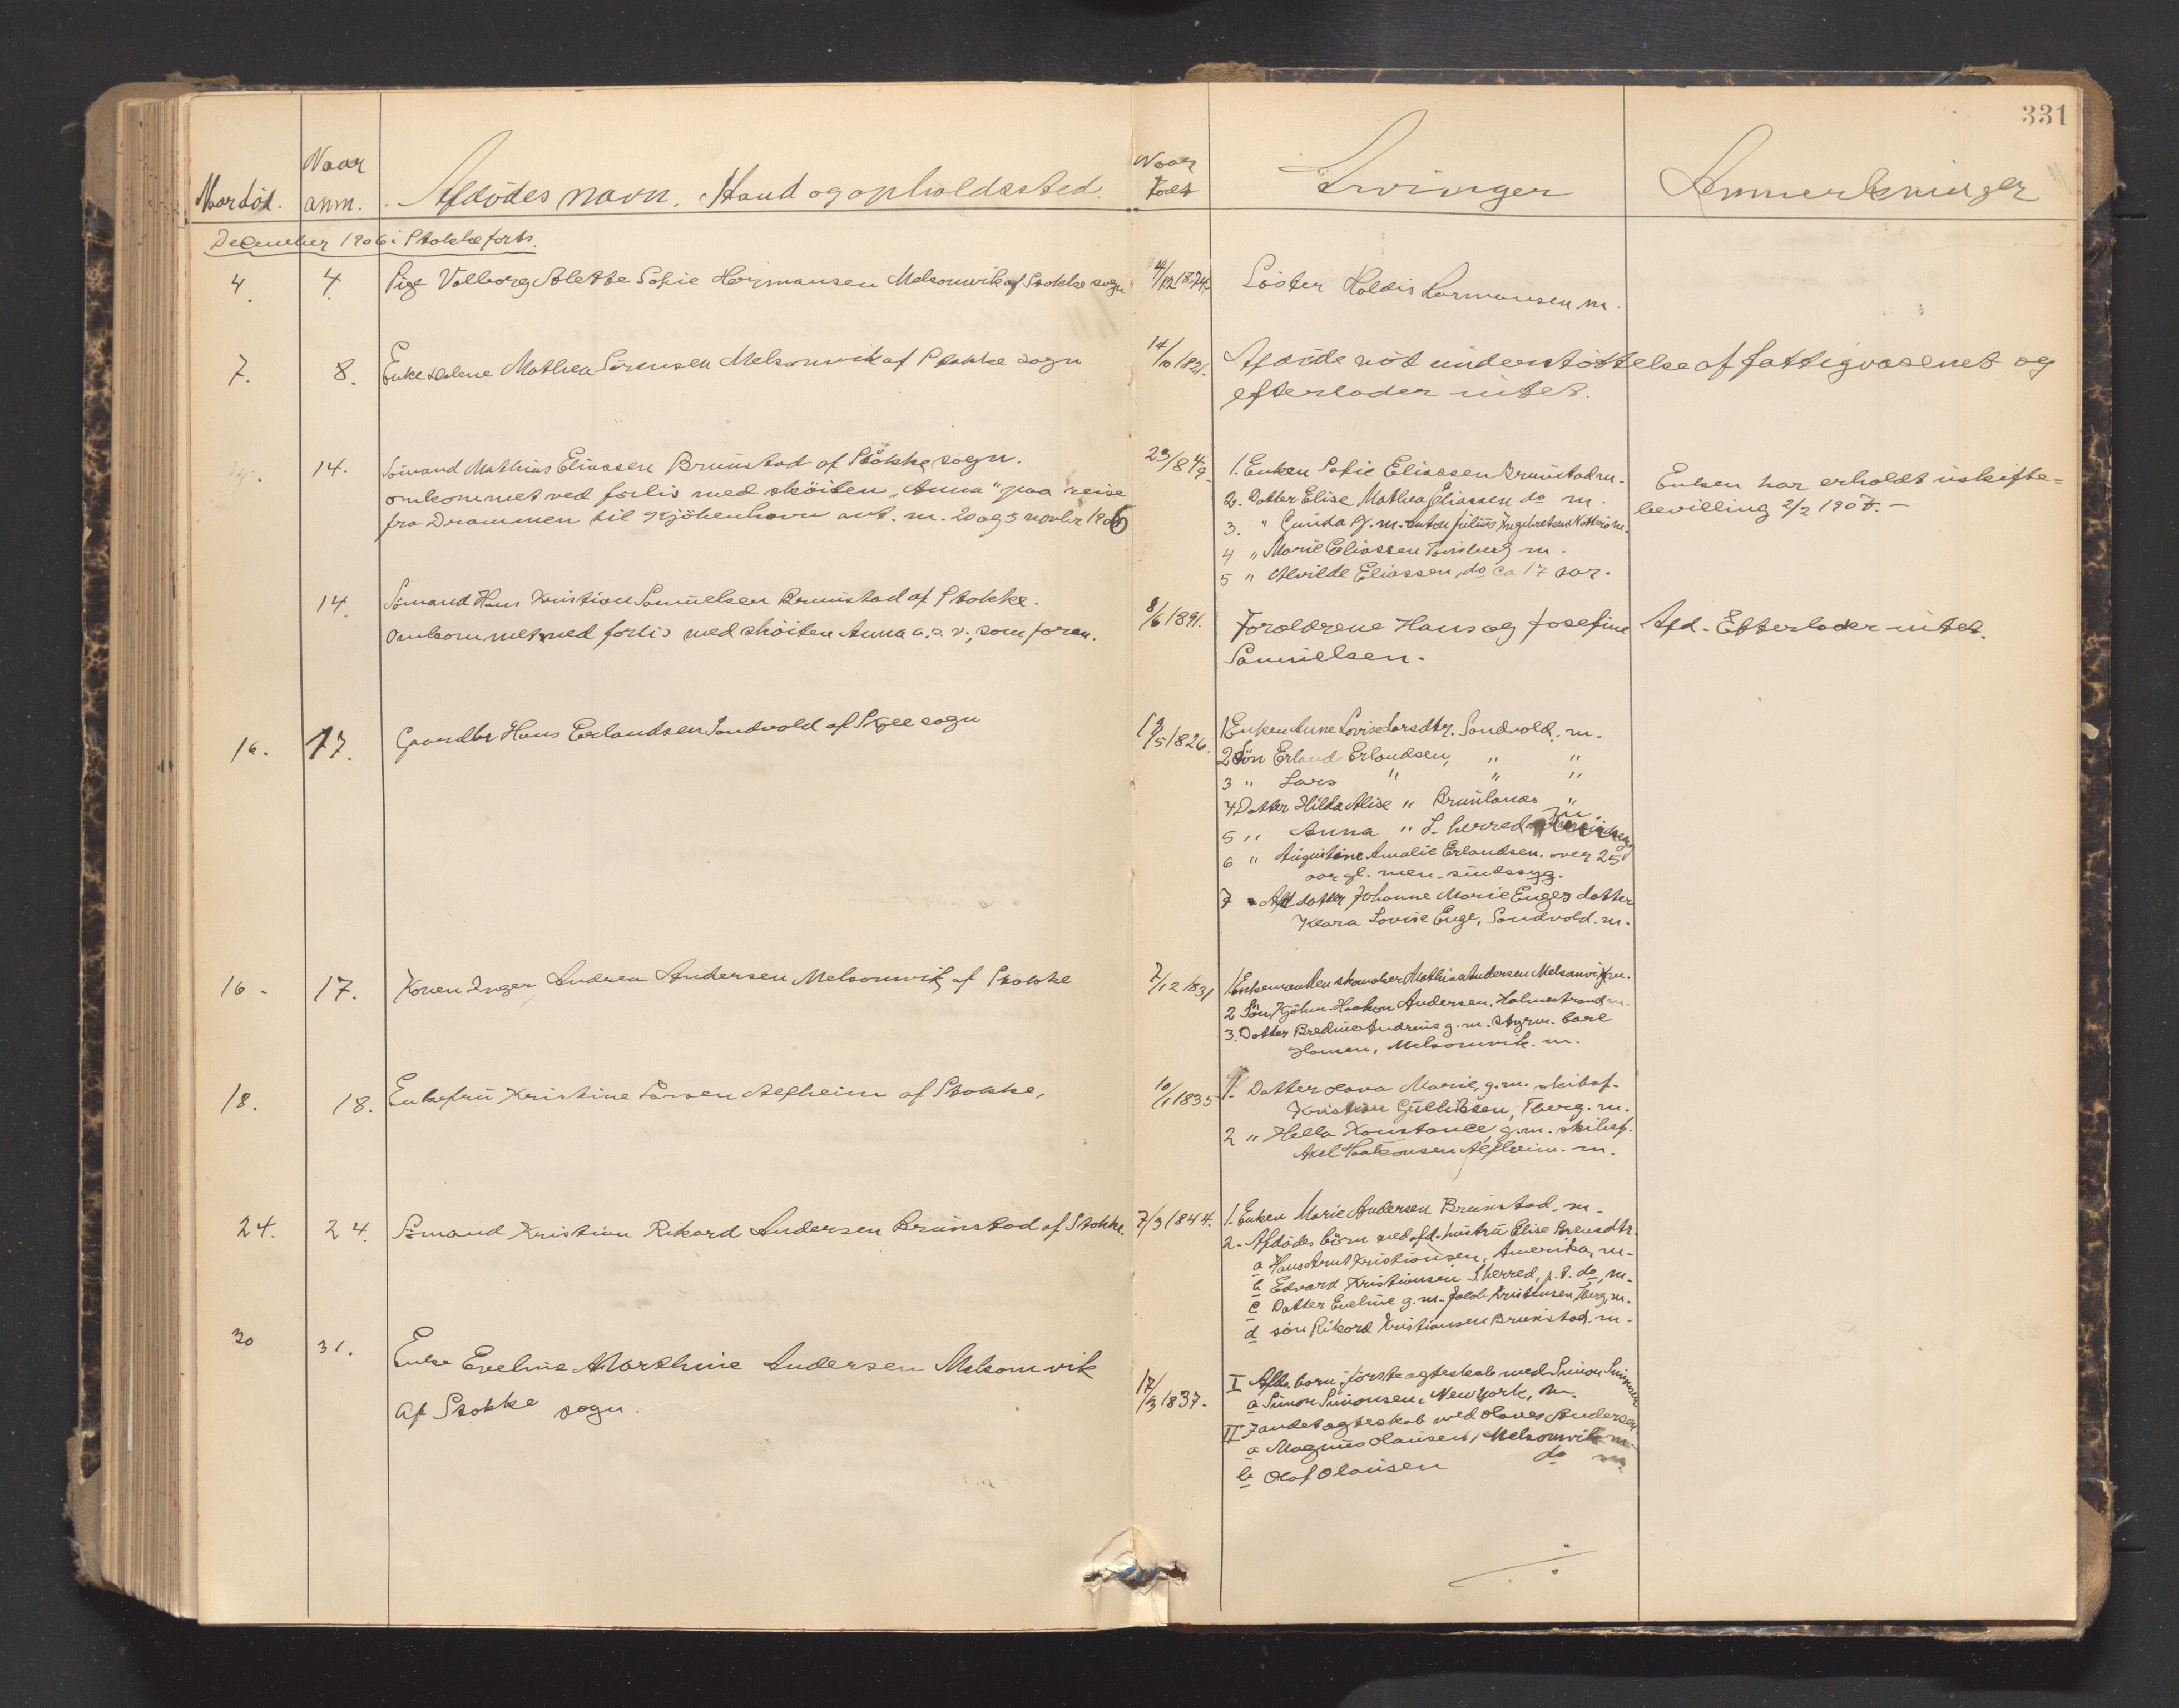 331
Naar död. Naar anm. Afdödes navn. Stand og opholdssted. Naar födt Arvinger Anmerkninger
December 1906 i Stokke forts.
4. 4. Pige Valborg Alette Sofie Hermansen Melsomvik af Stokke sogn 4/12 1874. Söster Haldis Hermansen m.
7. 8. Enke Helene Mathea Sörensen Melsomvik af Stokke sogn 14/10 1821. Afdöde nöt understöttelse af fattigvæsenet og
efterlader intet.
14. Sömand Mathias Eliassen Brunstad af Stokke sogn.
omkommet ved forlis med sköiten "Anna" paa reise
fra Drammen til Kjöbenhavn ant. m. 20 og 3 novbr 1906
23/8 49. 1. Enken Sofie Eliassen Brunstad m.
2. Datter Elise Mathea Eliassen do m.
3. " Gunda g. m. Anton Julius Ingebretsen Nötterö m.
4 " Marie Eliassen Tönsberg m.
5 " Alvilde Eliassen, do ca 17 aar.
Enken har erholdt uskifte=
bevilling 2/2 1907.-
14 Sömand Hans Kristian Samuelsen Brunstad af Stokke.
Omkommet ved forlis med sköiten Anna o.s.v., som foran.
8/6 1891. Forældrene Hans og Josefine
Samuelsen.
Afd. Efterlader intet.
16. 17. Gaardbr Hans Erlandsen Sandvold af Skjee sogn
19/5 1826. 1 Enken Anne Lovise Larsdtr. Sandvold. m.
2 Sön Erland Erlandsen, " "
3 " Lars " " "
4 Datter Hilda Alise " Brunlanes "
5 " Anna " S. herred m.
6 " Augustine Amalie Erlandsen. over 25
aar gl. men sindssyg.
7 " Afd datter Johanne Marie Enges datter
Klara Lovise Enge, Sandvold. m.
16. 17. Konen Inger Andrea Andersen Melsomvik af Stokke
7/12 1831 1 Enkemanden skomaker Mathias Andersen Melsomvik m.
2 Sön Kjöbm. Haakon Andersen, Holmestrand m.
3. Datter Bredine Andrine g. m. styrm. Carl
Hansen, Melsomvik. m.
18. 18. Enkefru Kristine Larsen Alfheim af Stokke,
10/1 1835 1. Datter Lava Marie, g. m. skibsf.
Kristian Gullichsen, Tberg. m.
2 " Hella Konstance g. m. skibsf.
Axel Haakonsen Alfheim. m.
24. 24. Sömand Kristian Rikard Andersen Brunstad af Stokke.
7/3 1844. 1. Enken Marie Andersen Brunstad. m.
2. Afdödes börn med afd. hustru Elise Brensdtr.
a Hans Arnt Kristiansen, Amerika, m.
b Edvard Kristiansen S. herred, p. t. do, m.
c Datter Eveline g. m. Jakob Kristensen, Tberg, m.
d sön Rikard Kristiansen Brunstad. m.
30 31. Enke Eveline Marthine Andersen Melsomvik
af Stokke sogn.
17/3 1837. I Afds. barn i förste ægteskab med Simon Simonsen
a Simon Simonsen, New York, m.
II I andet ægteskab med Olaves Andersen.
a Magnus Olausen, Melsomvik m
b Olaf Olausen do m